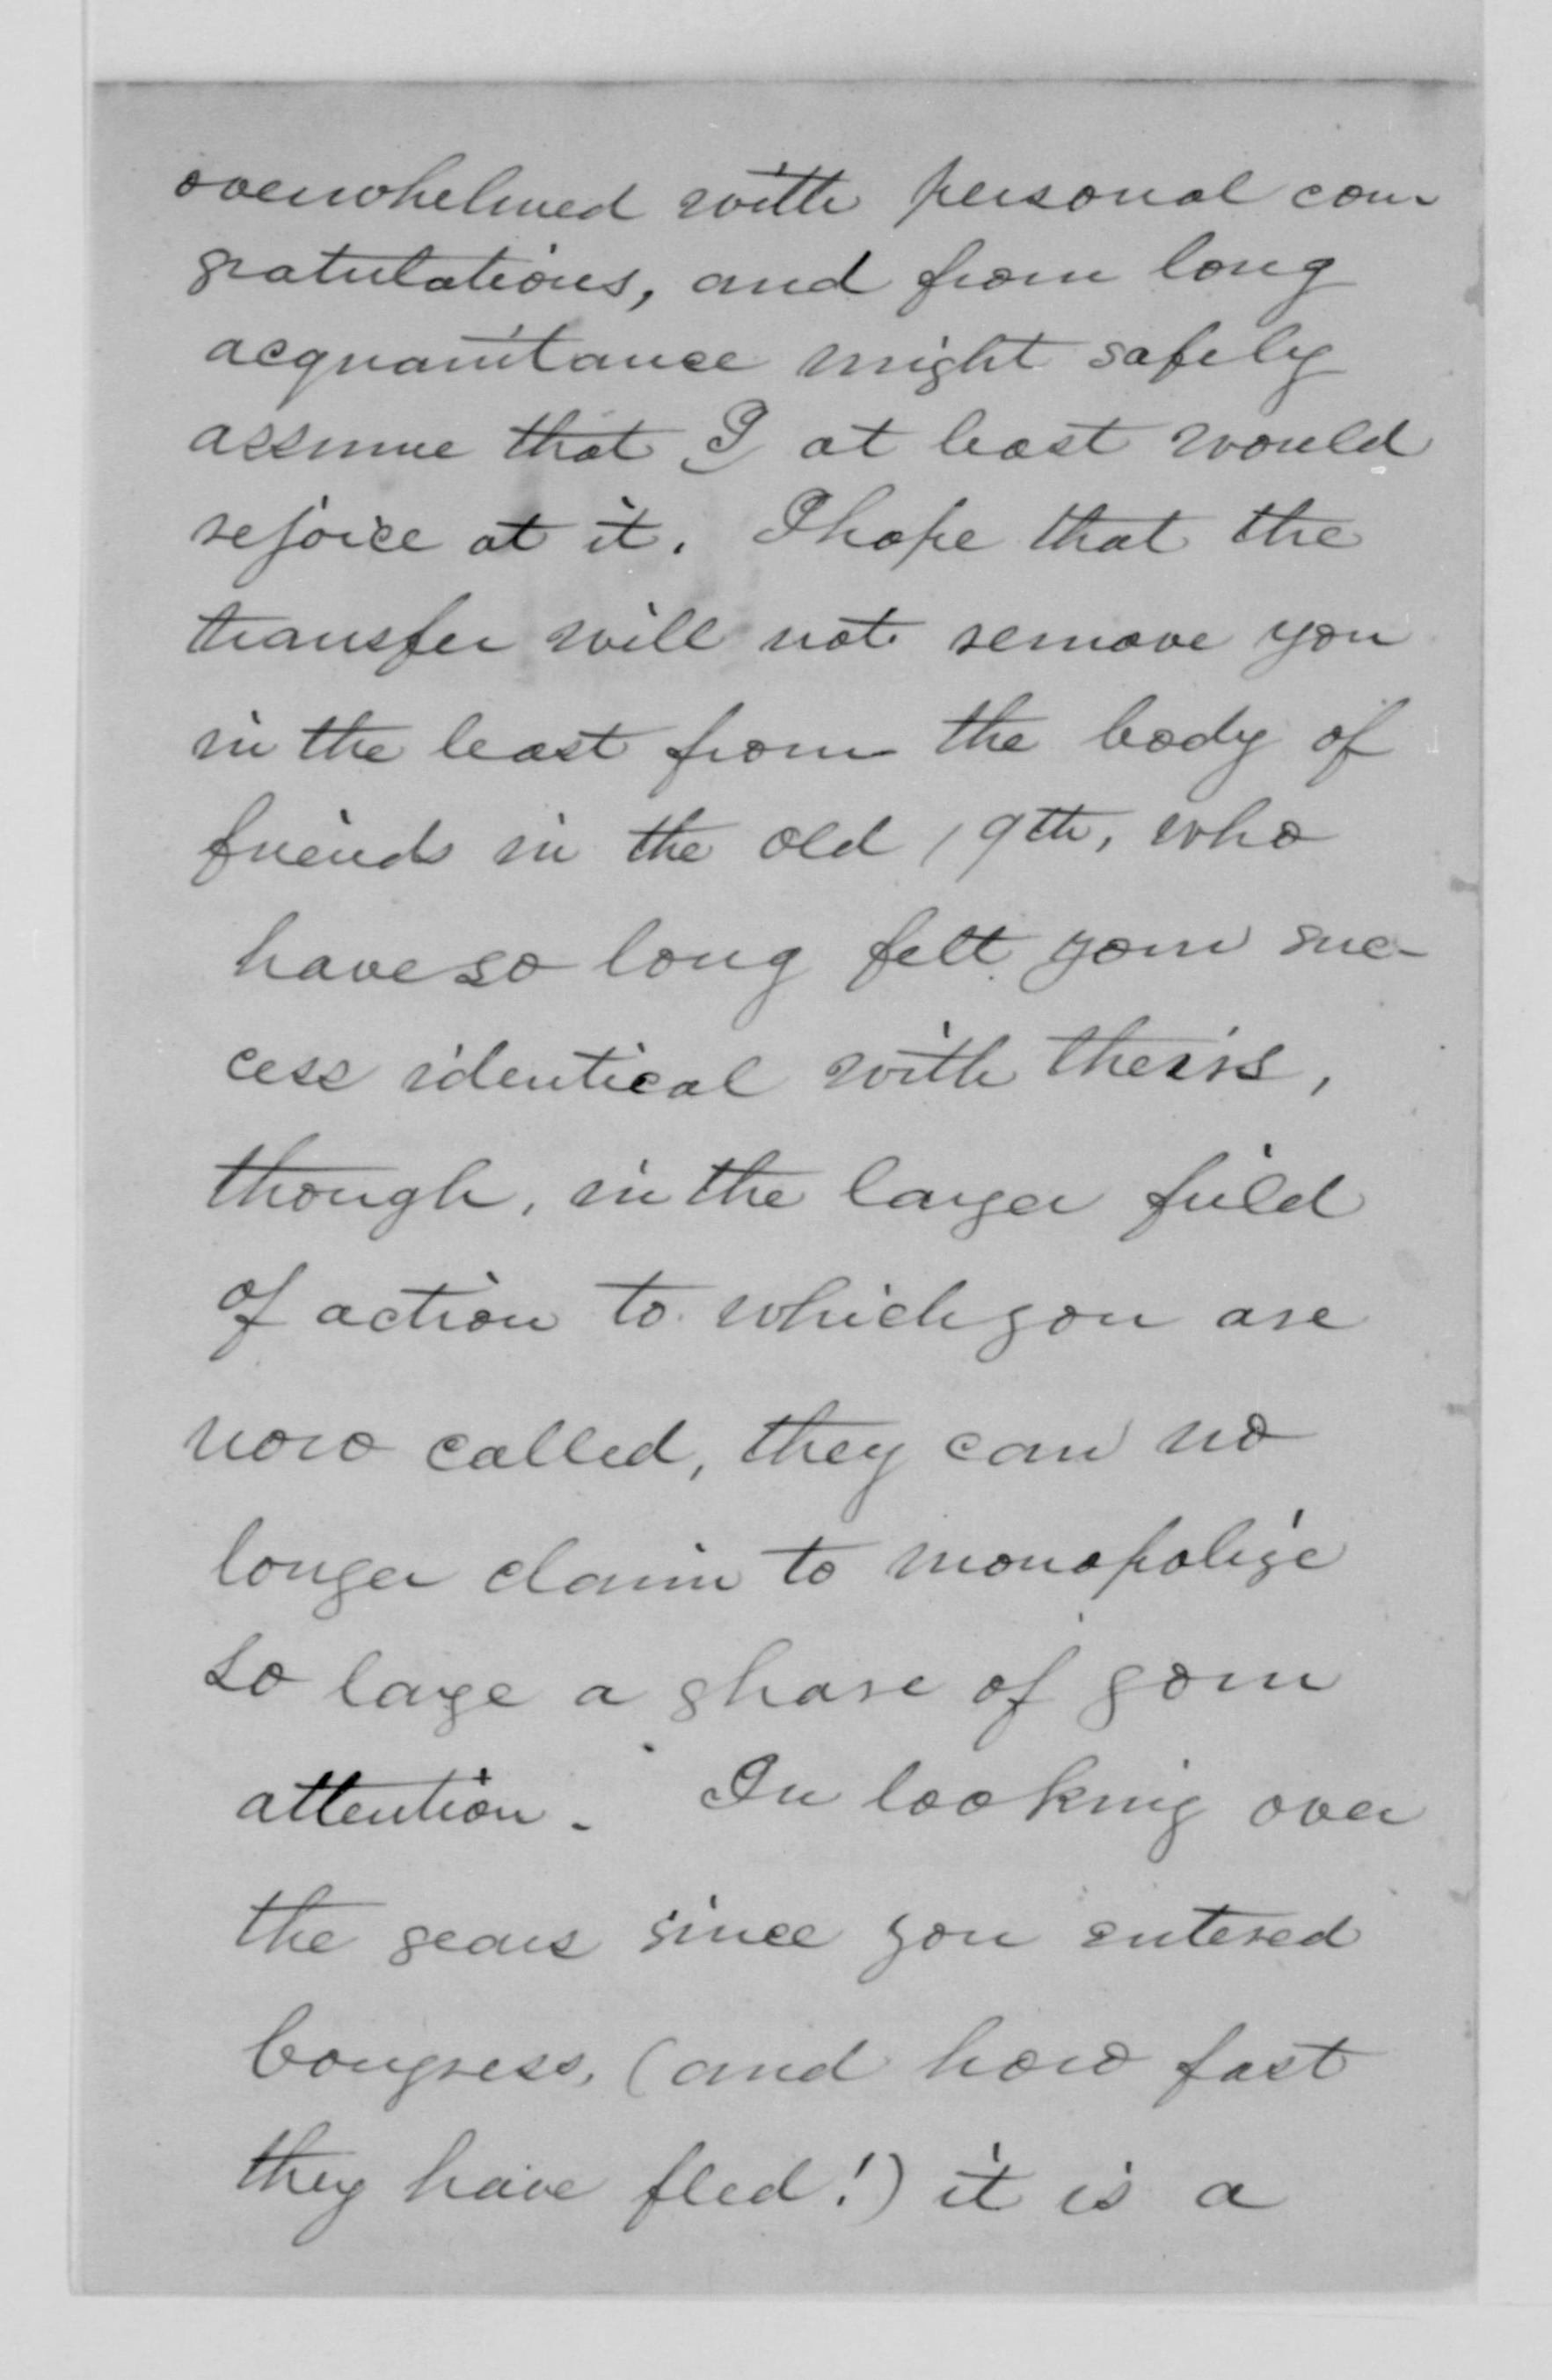 overwhelmed with personal con-
gratulations, and from long
acquaintance might safely
assume that I at least would
rejoice at it. I hope that the
transfer will not remove you
in the least from the body of
friends in the old 19th, who
have so long felt your suc-
cess identical with theirs,
though, in the larger field
of action to which you are
now called, they can no
longer claim to monopolize
so large a share of your
attention. In looking over
the years since you entered
Congress, (and how fast
they have fled!) it is a